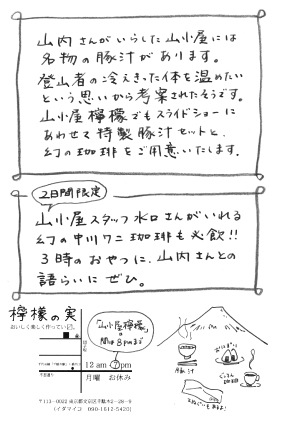 山内さんがいらした山小屋には
名物の豚汁があります。
登山者の冷えきった体を温めたい
という思いから考案されたそうです。
山小屋檸檬でもスライドショーに
あわせて特製豚汁セットと、
幻の珈琲をご用意いたします。
2日間限定
山小屋スタッフ水口さんがいれる
幻の中川ワニ珈琲も必飲!!
3時のおやつに、山内さんとの
語らいにぜひ。
檸檬の実
おいしく楽しく作っています。
「山小屋檸檬」の
間は8pmまで
12 am 7 pm
月曜 お休み
豚汁
おにぎり
〒113-0022 東京都文京区千駄木2-28-9
(イダマイコ 090-1612-5420)